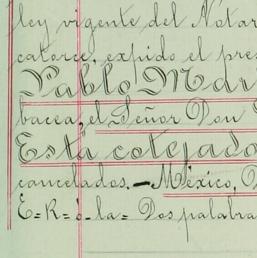 ley vigente del Notar
catorce, expido el pres
Pablo Mar
bacea, el Señor Don
Está cotejado
cancelados.—México, D
E=R=ó=la= Dos palabra